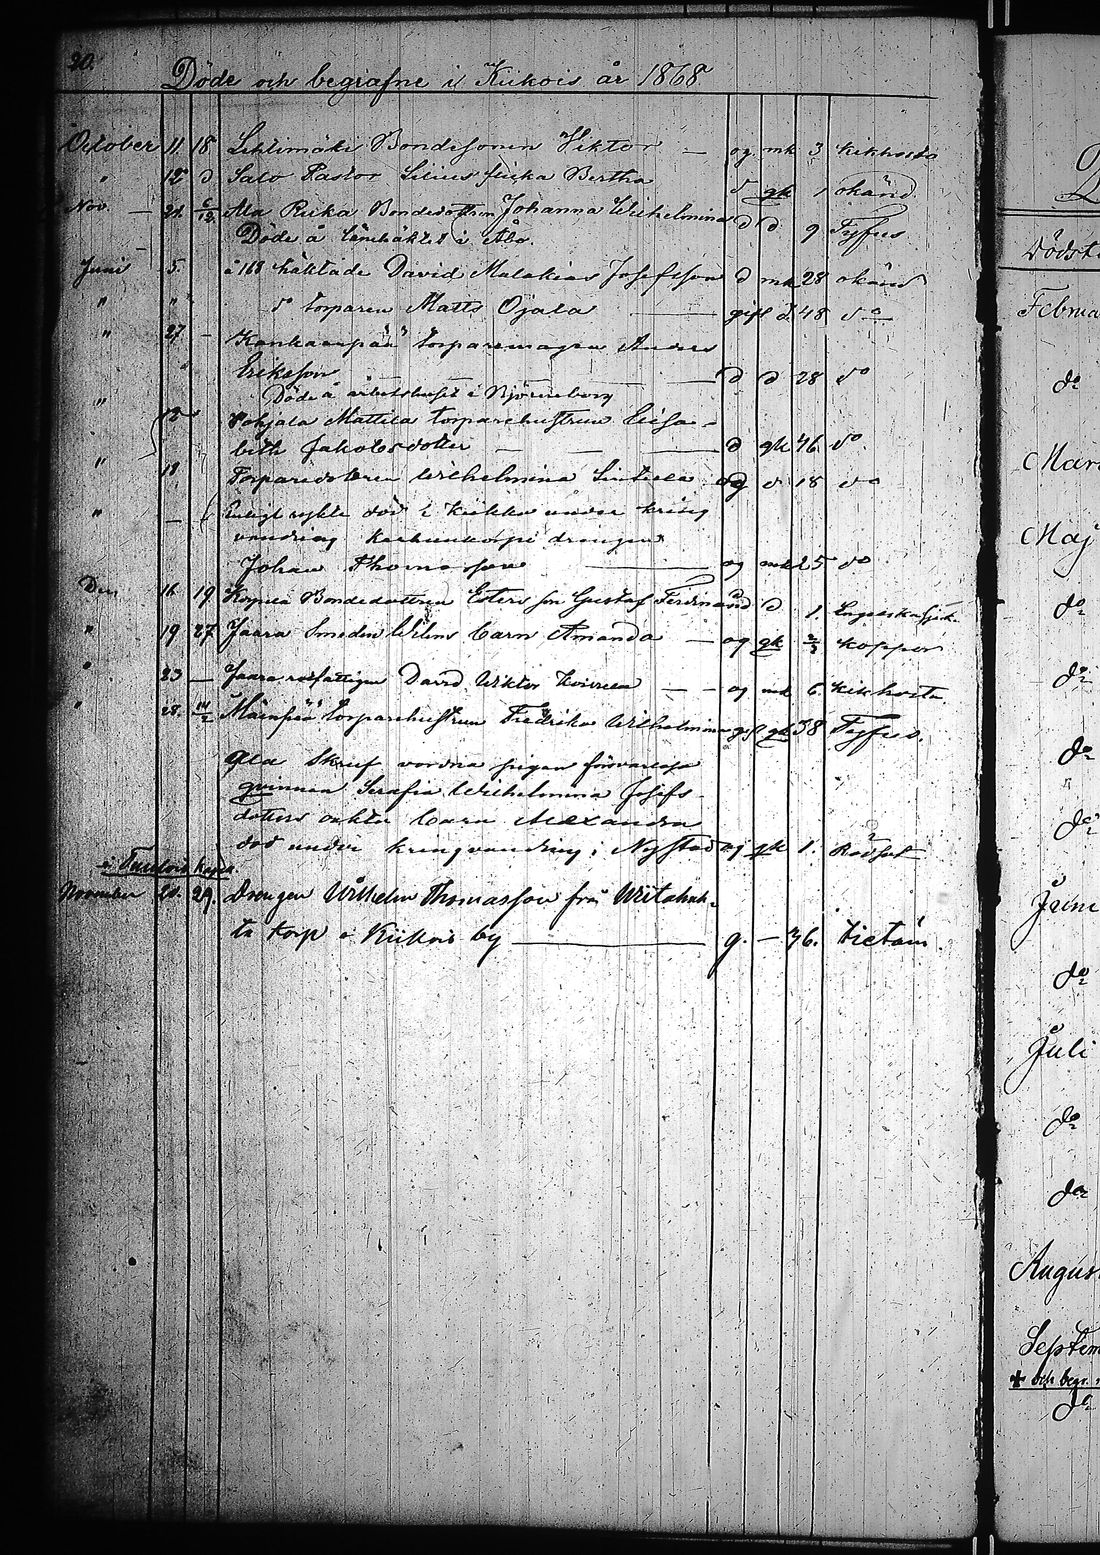 20.
Döde och begrafne i Kiikois år 1868
October 11 18 Lehtimäki Bondesonen Viktor — og mk 3 kikhosta
" 12 d Salo Pastor Lilius flicka Bertha d gk 1 okänd
Nov. — 21. 6/12 Ala Ricka Bondedottren Johanna Wilhelmina d d 9 Tyfus
Döde å länehäktet i Åbo.
Juni 5. — häktade David Malakias Josefsson d mk 28 okänd
" " do torparen Matts Ojala — gift d. 48 do
" 27 — Kankaanpää torparemågen Anders
Eriksson — d d 28 do
Döde å arbetshuset i Björneborg
" 12 Pohjala Mattila torparehustrun Lisa-
beth Jakobsdotter — d gk 46 do
" 18 Torparedottren Wilhelmina — og d 18 do
" — Enligt rykte död i Kiikka under kring
vandring drängen
Johan Thomasson — og mk 25 do
Dec 16 19 Bondedottren Esters son Gustaf Ferdinand d 1. Engelska sjuk.
" 19 27 Jaara Smeden Wilens barn Amanda — og gk koppor
" 23 — Jaara rotfattigen David Wiktor — og mk 6. kikhosta
" 28. Mäenpää torparehustrun Fredrika Wilhelmina gift gk 38 Tyfus.
Ala Skruf vordna pigan försvarlösa
qvinnan Serafia Wilhelmina Josefs-
dotters oäkta barn Alexandra
död under kringvandring i Nystad og gk 1. Rödsot
November 20. 29. Drengen Wilhelm Thomasson från
ta torp i Kiikois by — g. — 36.
Dödst
Februa
do
Mars
Maj
do
do
do
do
Juni
do
Juli
do
do
August
Septem
+ och begr.
do